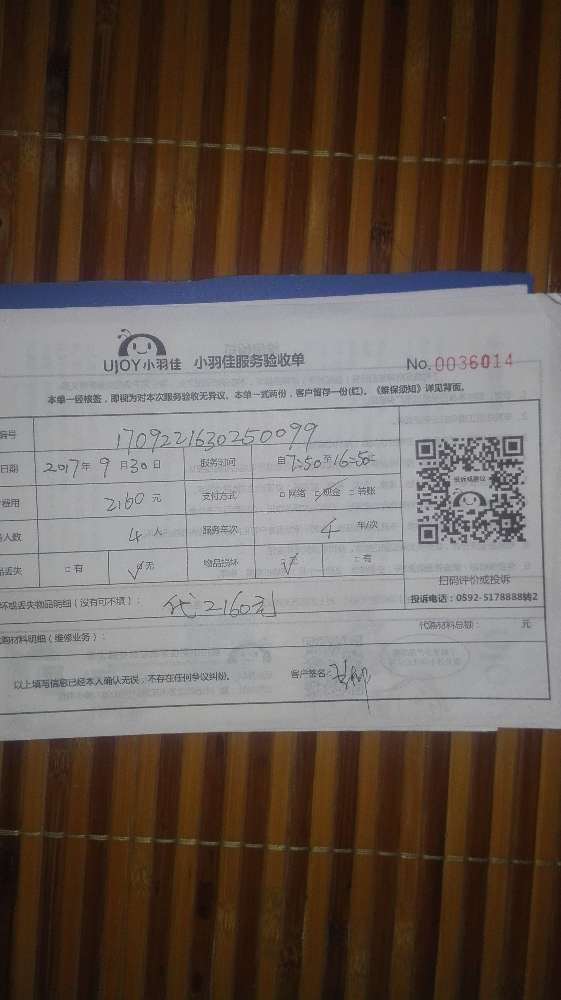 UJOY小羽佳 小羽佳服务验收单 No.0036014
本单一经核签，即视为对本次服务验收无异议。本单一式两份，客户留存一份(红)。《维保须知》详见背面。
编号 1709221630250099
日期 2017年9月30日 服务时间 自7:50至16:50止
费用 2160元 支付方式 □网络 □现金 □转账
人数 4人 服务车次 4车/次
品丢失 □有 √无 物品损坏 √ □有
投诉或建议
扫码评价或投诉
投诉电话：0592-5178888转2
坏或丢失物品明细（没有可不填）： 代2160
购材料明细（维修业务）： 代购材料总额： 元
以上填写信息已经本人确认无误，不存在任何争议纠纷。 客户签名：